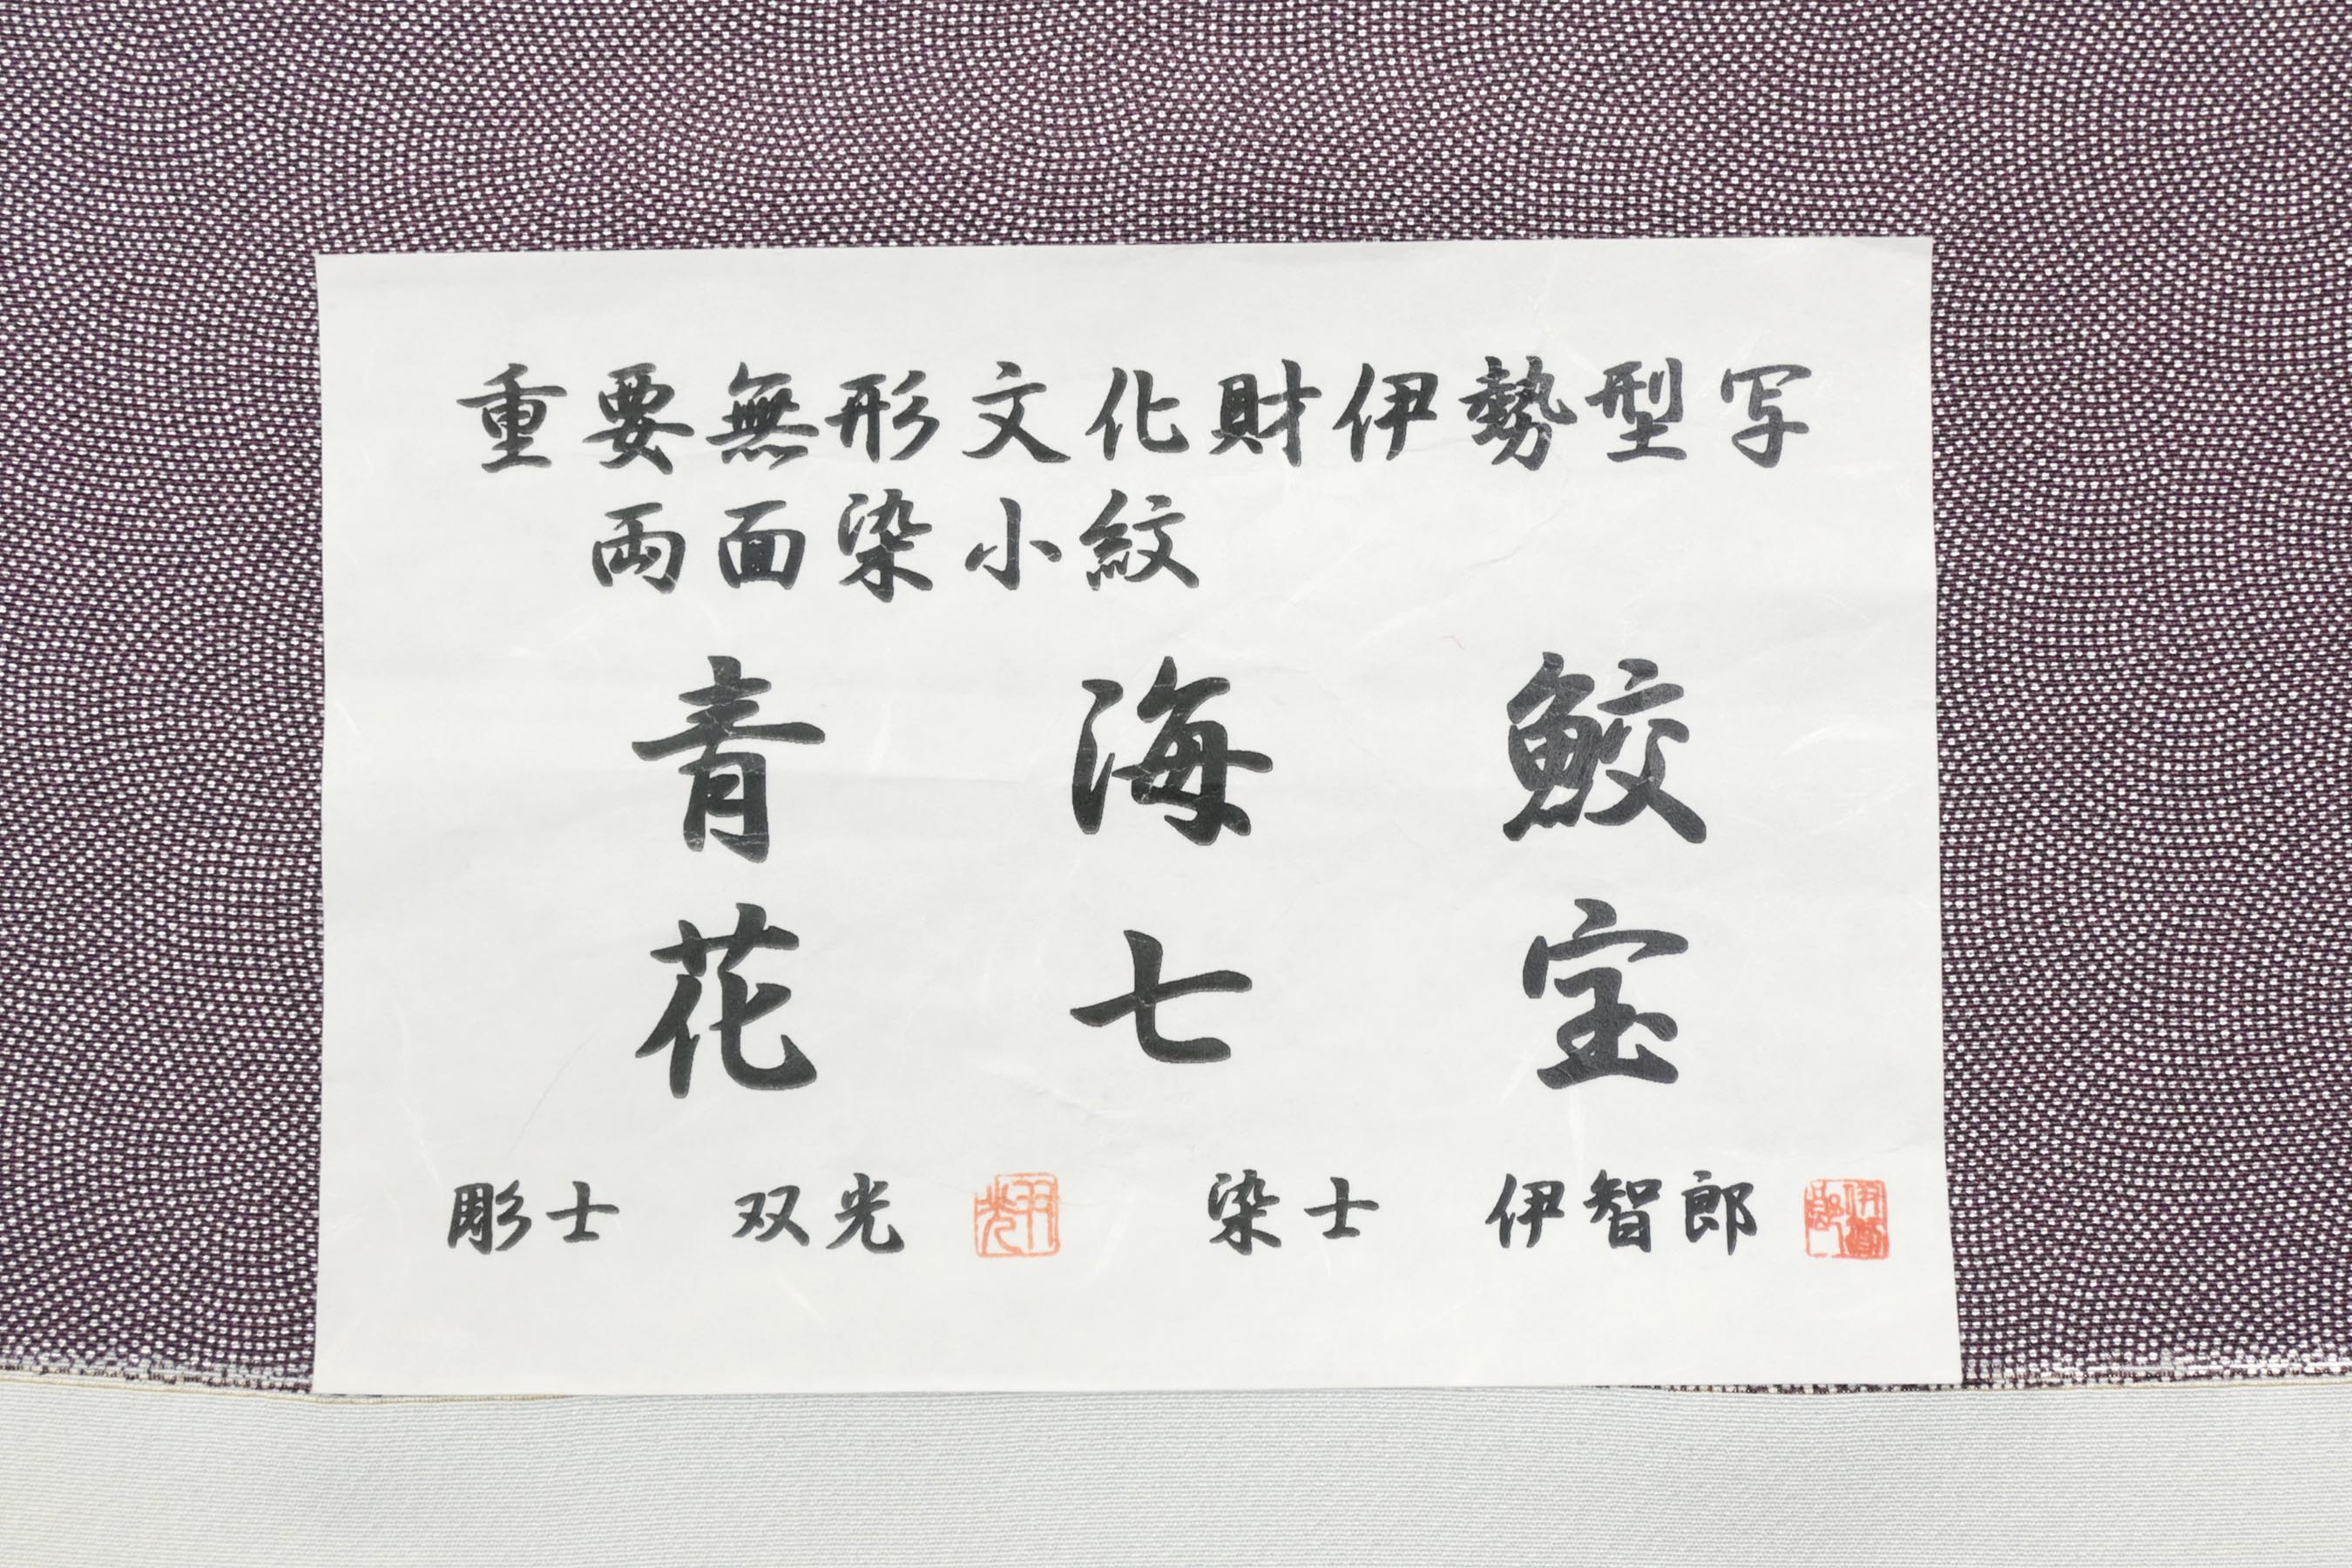 重要無形文化財伊勢型写
両面染小紋
青海鮫
花七宝
彫士 双光 染士 伊智郎